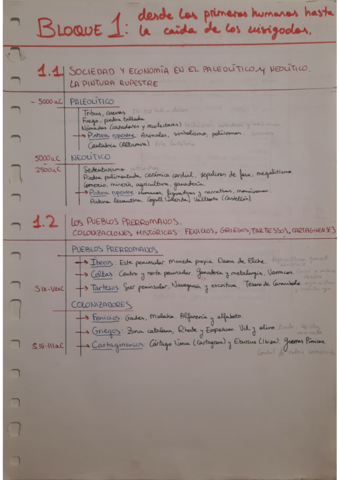 BLOQUE 1: desde los primeros humanos hasta
la caída de los visigodos.
1.1 SOCIEDAD Y ECONOMÍA EN EL PALEOLÍTICO Y NEOLÍTICO.
LA PINTURA RUPESTRE
-5000 a.C PALEOLÍTICO
Tribus, cuevas
Fuego, piedra tallada
Nómadas (cazadores y recolectores)
→ Pintura rupestre: Animales, simbolismo, polícromas
Cantabria (Altamira)
5000 a.C NEOLÍTICO
2500 a.C Sedentarismo
Piedra pulimentada, cerámica cardial, sepulcros de fosa, megalitismo
Comercio, minería, agricultura, ganadería
→ Pintura rupestre: humanos, figurativas y narrativas, monócromas
Pintura levantina: Cogull (Lleida)
1.2 LOS PUEBLOS PRERROMANOS.
COLONIZACIONES HISTÓRICAS: FENICIOS, GRIEGOS, TARTESSOS, CARTAGINESES
PUEBLOS PRERROMANOS
→ Íberos: Este peninsular. Moneda propia. Dama de Elche.
→ Celtas: Centro y norte peninsular. Ganadería y metalurgia.
→ Tartesos: Sur peninsular. Navegación y escritura. Tesoro de Carambolo
COLONIZADORES
→ Fenicios: Gades, Malaka. Alfarería y alfabeto.
→ Griegos: Zona catalana, Rhode y Emporion. Vid y olivo
→ Cartagineses: Cartago Nova (Cartagena) y Ebussus (Ibiza). Guerras Púnicas